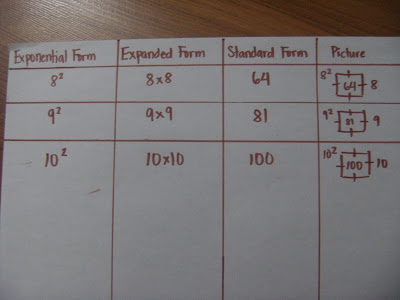 Exponential Form Expanded Form Standard Form Picture
8² 8x8 64 8² 64 8
9² 9x9 81 9² 81 9
10² 10x10 100 10² 100 10